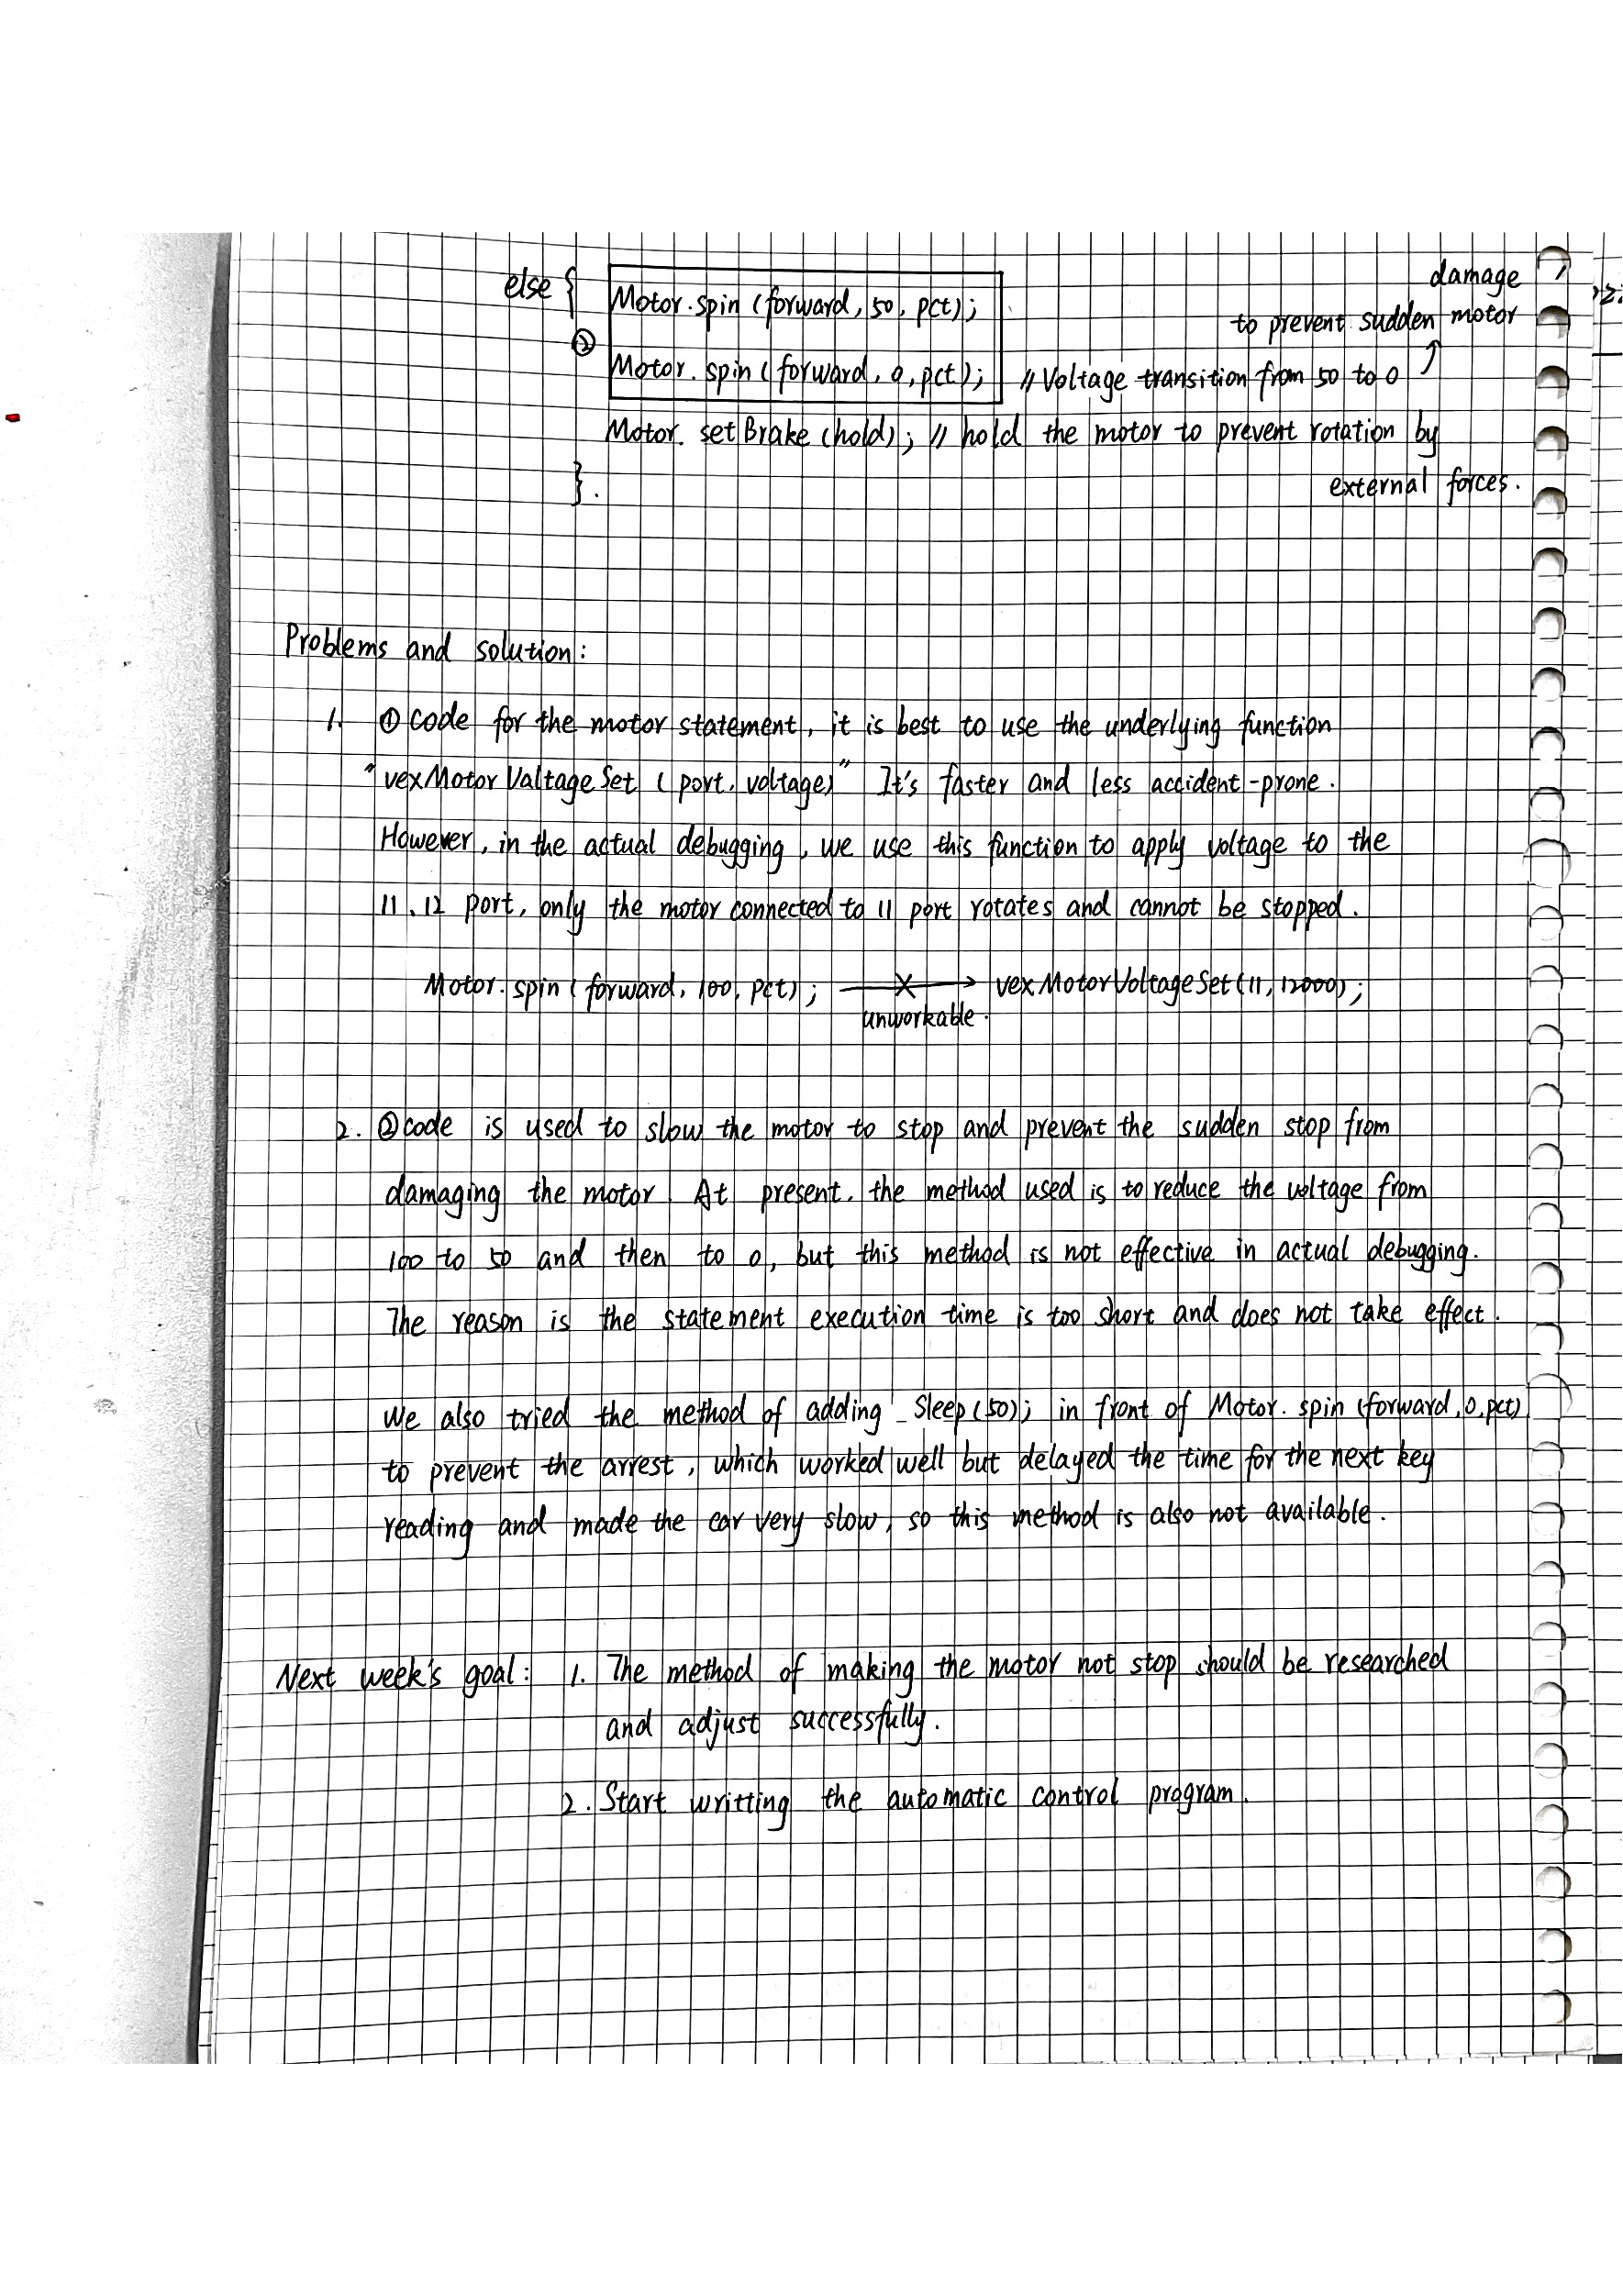 else { Motor.spin (forward, 50, pct);
②
Motor.spin (forward, 0, pct); // Voltage transition from 50 to 0
to prevent sudden motor
damage
Motor. setBrake (hold); // hold the motor to prevent rotation by
external forces.
}.
Problems and solution:
1. ① code for the motor statement, it is best to use the underlying function
"vexMotorValtageSet (port, voltage)" It's faster and less accident-prone.
However, in the actual debugging, we use this function to apply voltage to the
11, 12 port, only the motor connected to 11 port rotates and cannot be stopped.
Motor.spin (forward, 100, pct); vexMotorVoltageSet (11, 12000);
unworkable.
2. ② code is used to slow the motor to stop and prevent the sudden stop from
damaging the motor. At present, the method used is to reduce the voltage from
100 to 50 and then to 0, but this method is not effective in actual debugging.
The reason is the statement execution time is too short and does not take effect.
We also tried the method of adding _Sleep (50); in front of Motor. spin (forward, 0, pct)
to prevent the arrest, which worked well but delayed the time for the next key
reading and made the car very slow, so this method is also not available.
Next week's goal: 1. The method of making the motor not stop should be researched
and adjust successfully.
2. Start writting the automatic control program.